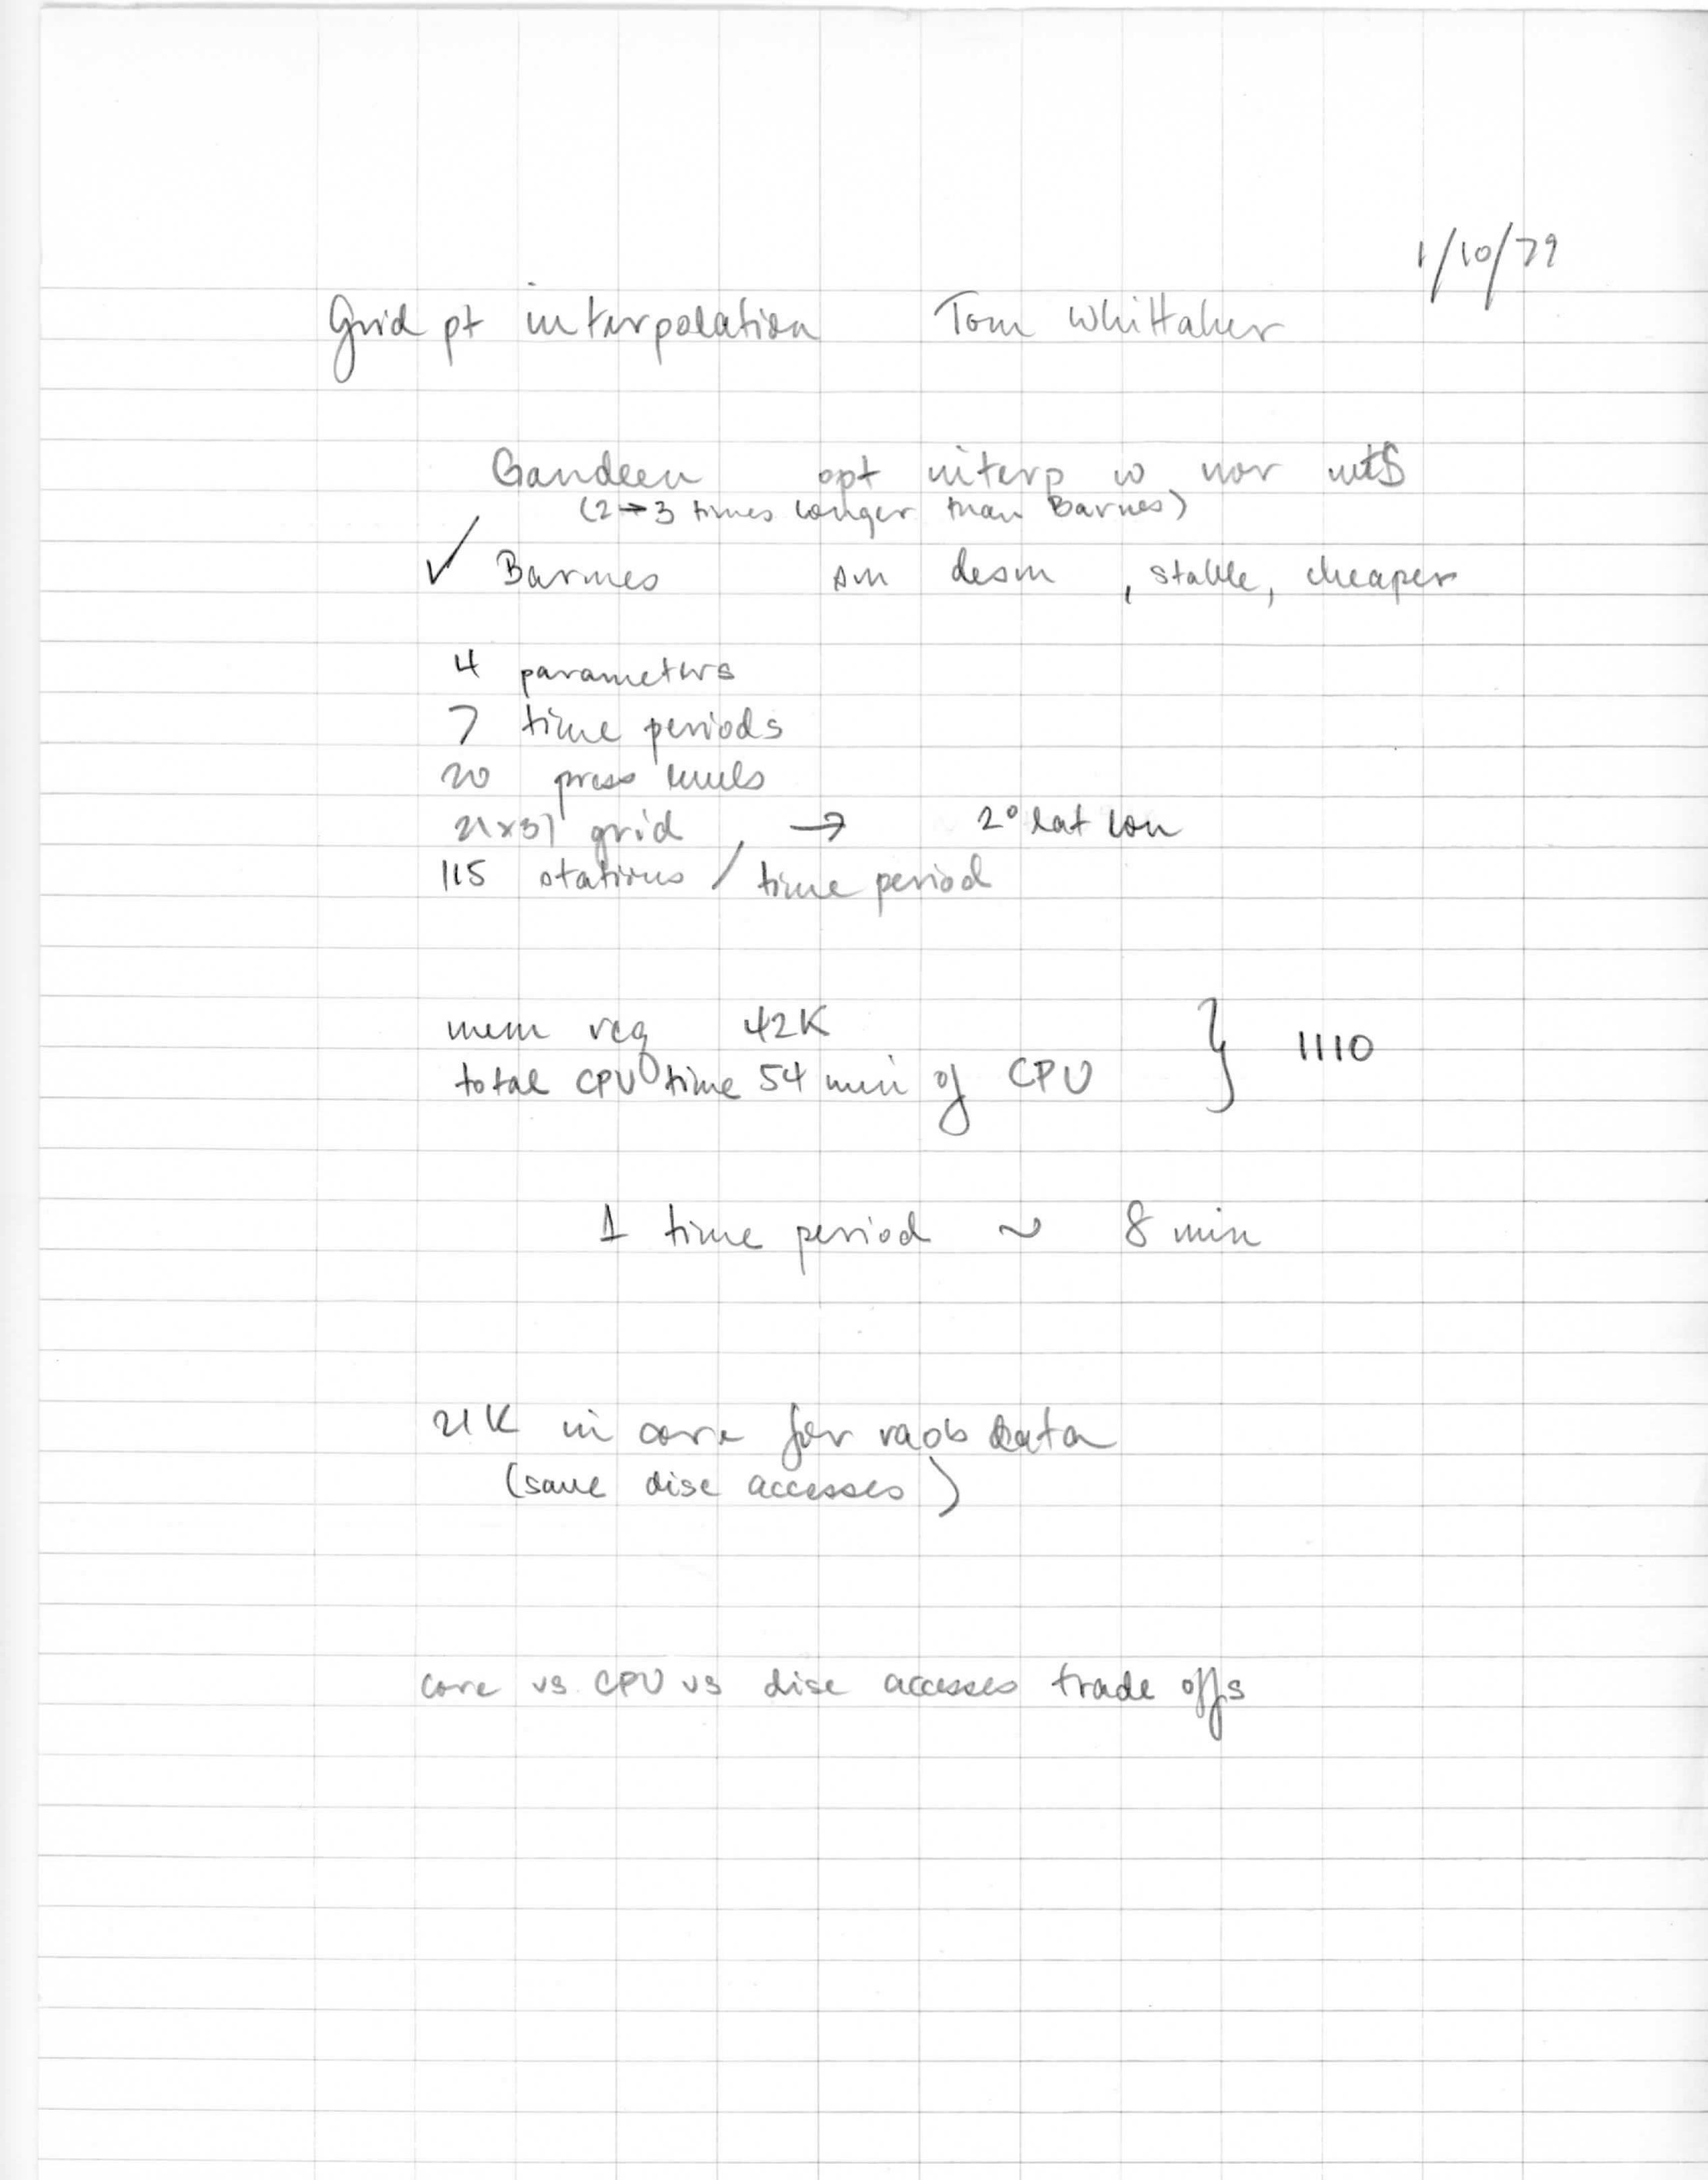 1/10/79
Grid pt interpolation Tom Whittaker
Gandeen opt interp w nor wts
(2→3 times longer than Barnes)
✓ Barnes sm desm , stable, cheaper
4 parameters
7 time periods
20 press levels
21x31 grid → 2° lat lon
115 stations / time period
mem req 42K
total CPU time 54 min of CPU } 1110
1 time period ~ 8 min
21K in core for raob data
(save disc accesses)
core vs CPU vs disc accesses trade offs